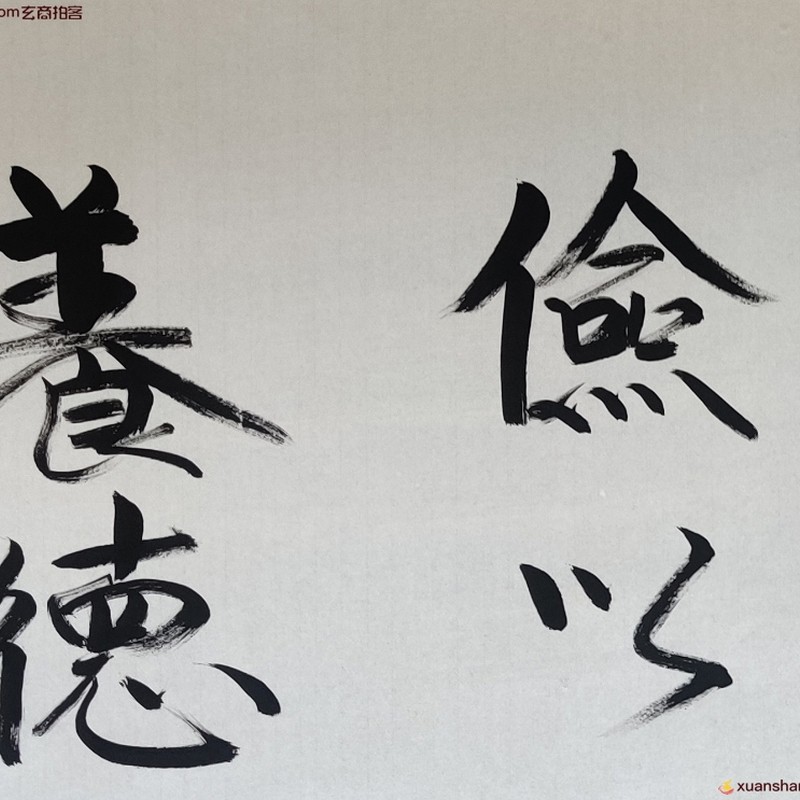 om玄商拍客
儉以
養德
xuanshan